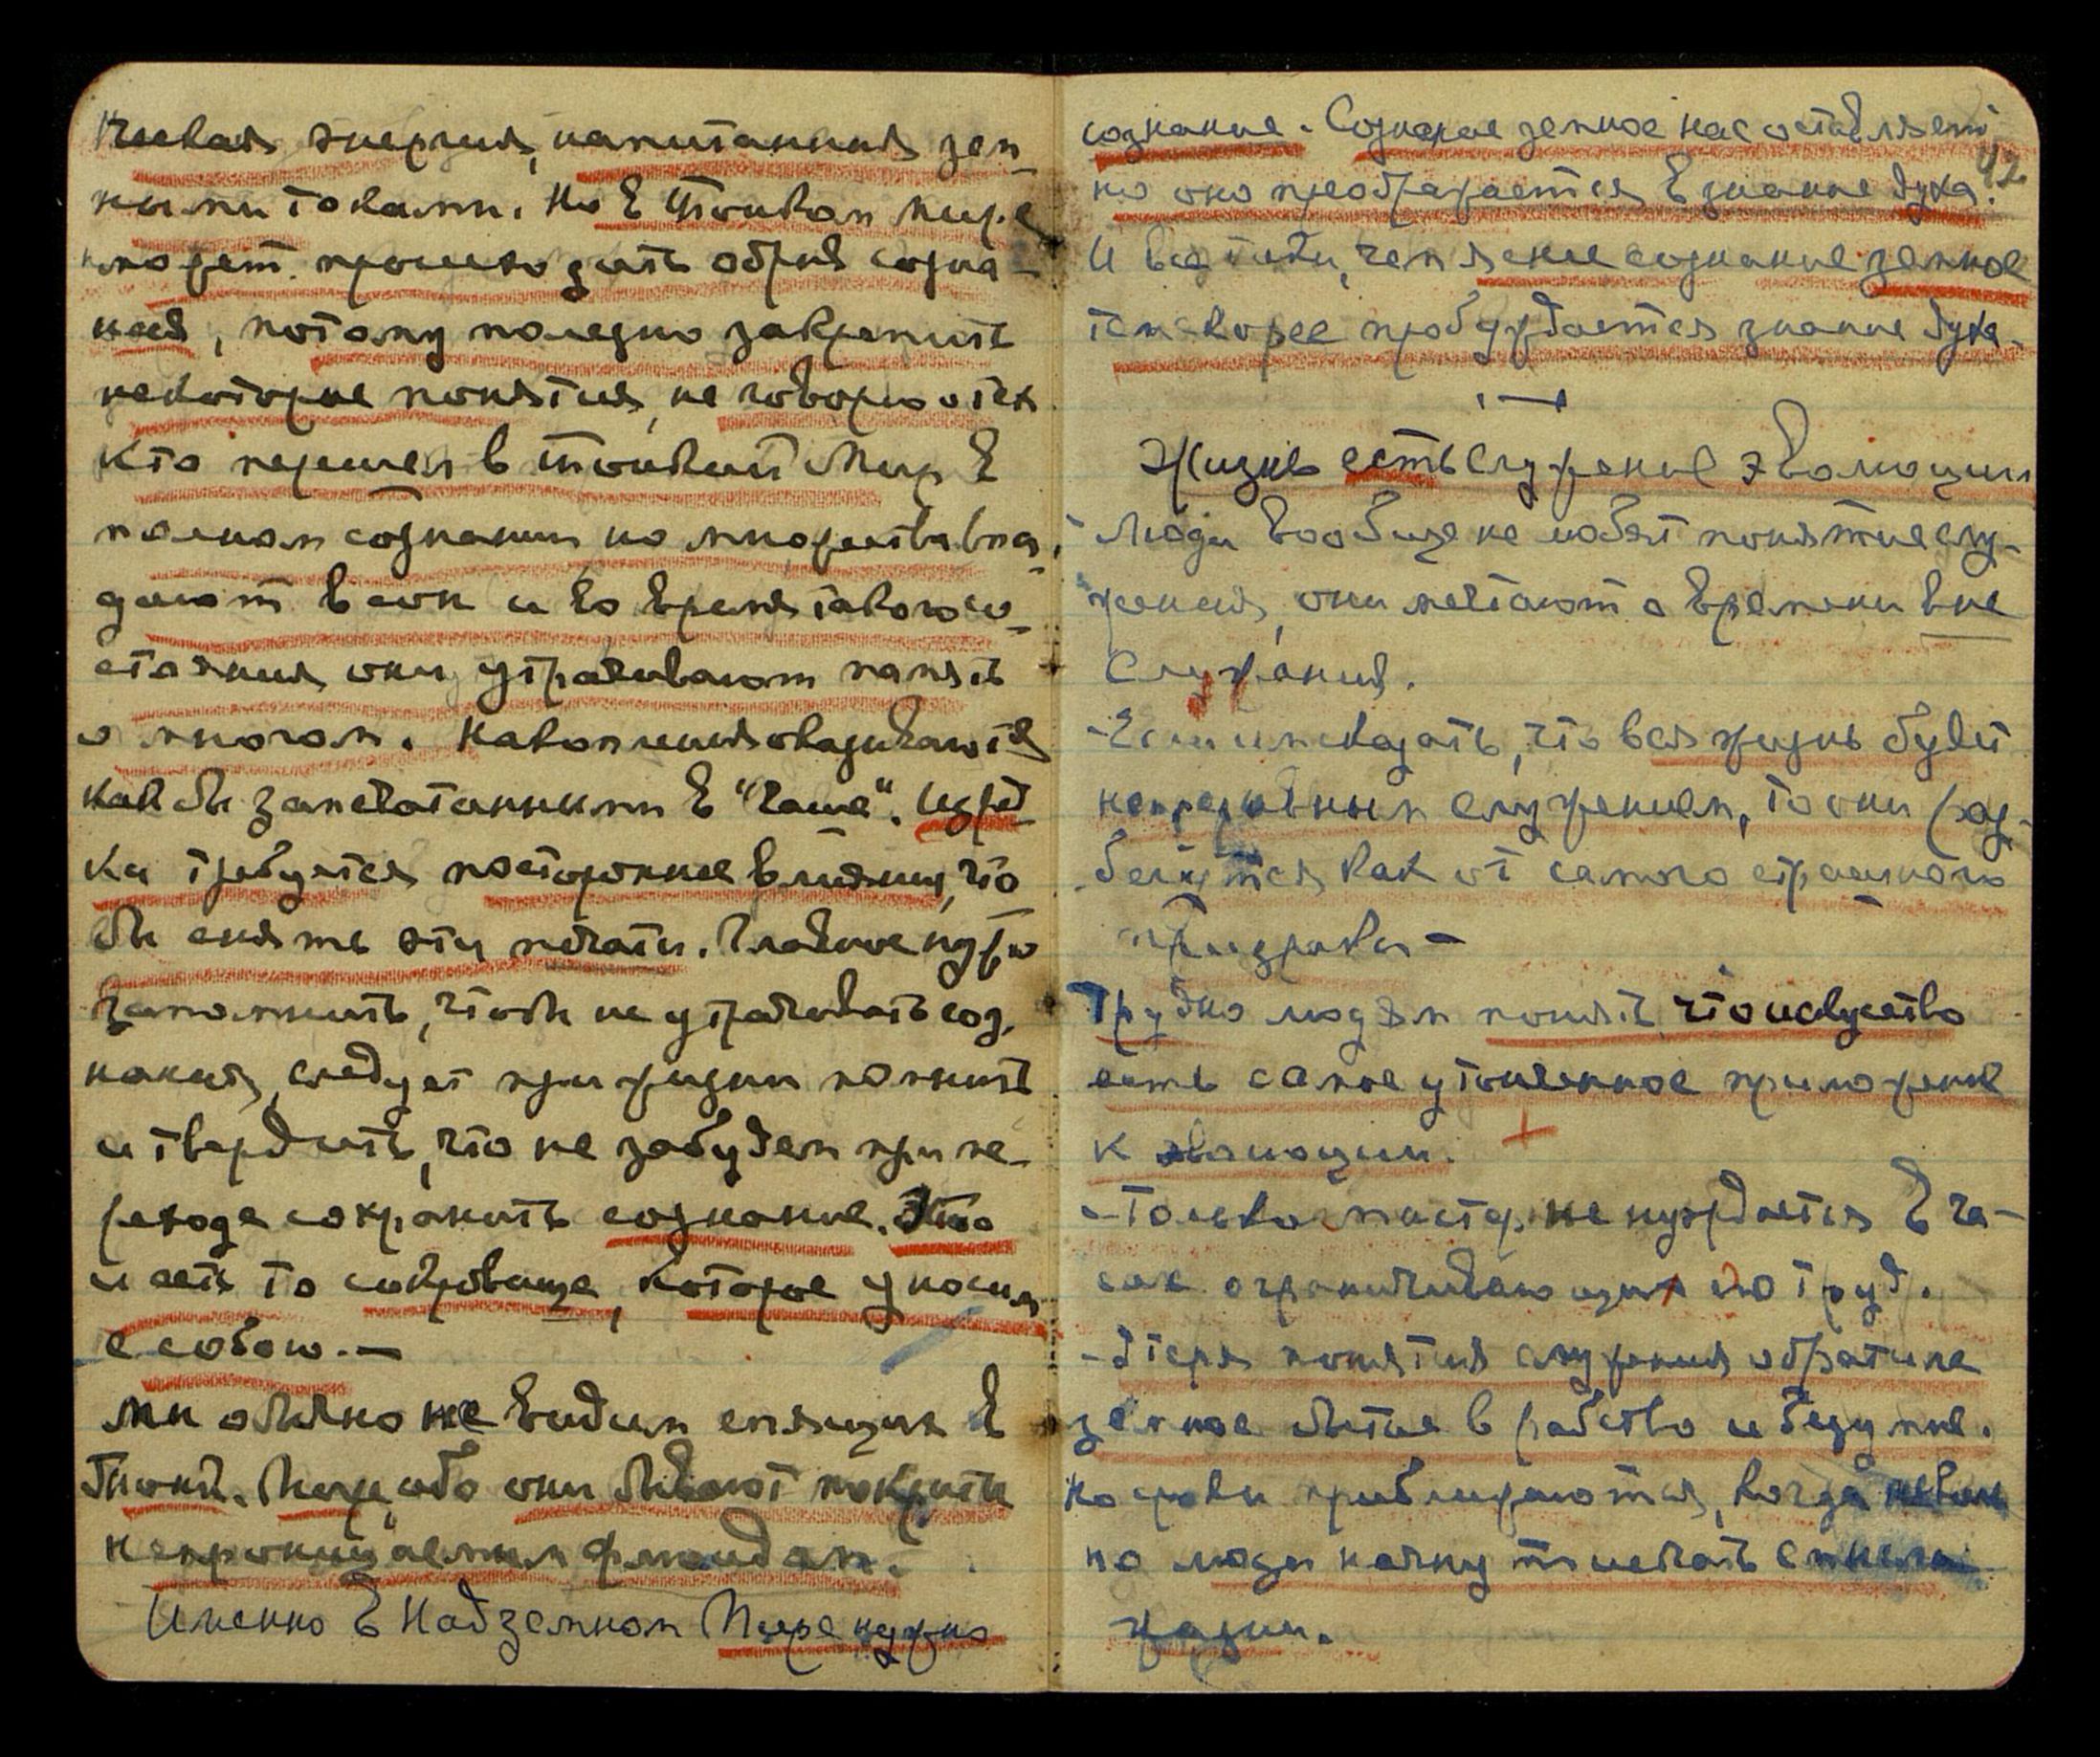 чневая энергия, напитанная зем-
ными токами. Но в Тонком мире
может происходить обрыв созна-
ния, потому полезно закрепить
некоторые понятия, не говорю о тех
кто перешел в тонкий Мир в
полном сознании, но множества впа-
дают в сон и во время такого со-
стояния они утрачивают память
о многом. Накопления оказываются
как бы запечатанными в "Чаше". Изред
ка требуется постороннее влияние, что
бы снять эти печати. Главное нужно
запомнить, чтобы не утрачивать соз-
нания, следует при жизни помнить
и твердить, что не забудем при пе-
реходе сохранить сознание. Это
и есть то сокровище, которое уносим
с собою. —
Мы обычно не видим спящих в
Тонк. Мире, ибо они бывают покрыты
непроницаемым флюидом.
Именно в Надземном Мире нужно
сознание. Сознание земное нас оставляет
42
но оно преображается в знание духа.
И вед тиви, чем яснее сознание земное
тем скорее пробуждается знание духа.
—
Жизнь есть служение эволюции
Люди вообще не любят понятие слу-
жения, они мечтают о времени вне
Служения.
- Если им сказать, что вся жизнь будет
непрерывным служением, то они раз-
бегутся как от самого страшного
призрака —
Трудно людям понять что искусство
есть самое утонченное приложение
к эволюции.
- Только мастер не нуждается в ча-
сах ограничивающих его труд.
- Потеря понятия служения обратила
земное бытие в рабство и безумие.
Но сроки приближаются, когда невольно
но люди начнут искать смысла
жизни.